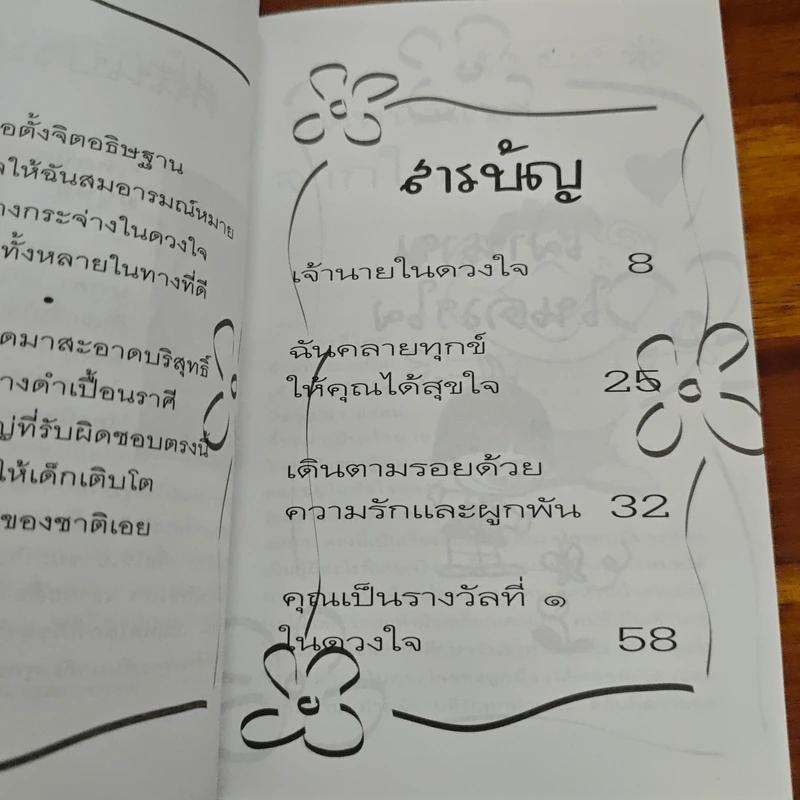 อตั้งจิตอธิษฐาน
ให้ฉันสมอารมณ์หมาย
งกระจ่างในดวงใจ
ทั้งหลายในทางที่ดี
ดมาสะอาดบริสุทธิ์
างดำเปื้อนราศี
ญ่ที่รับผิดชอบตรงนี้
ให้เด็กเติบโต
ของชาติเอย
สารบัญ
เจ้านายในดวงใจ 8
ฉันคลายทุกข์
ให้คุณได้สุขใจ 25
เดินตามรอยด้วย
ความรักและผูกพัน 32
คุณเป็นรางวัลที่ ๑
ในดวงใจ 58